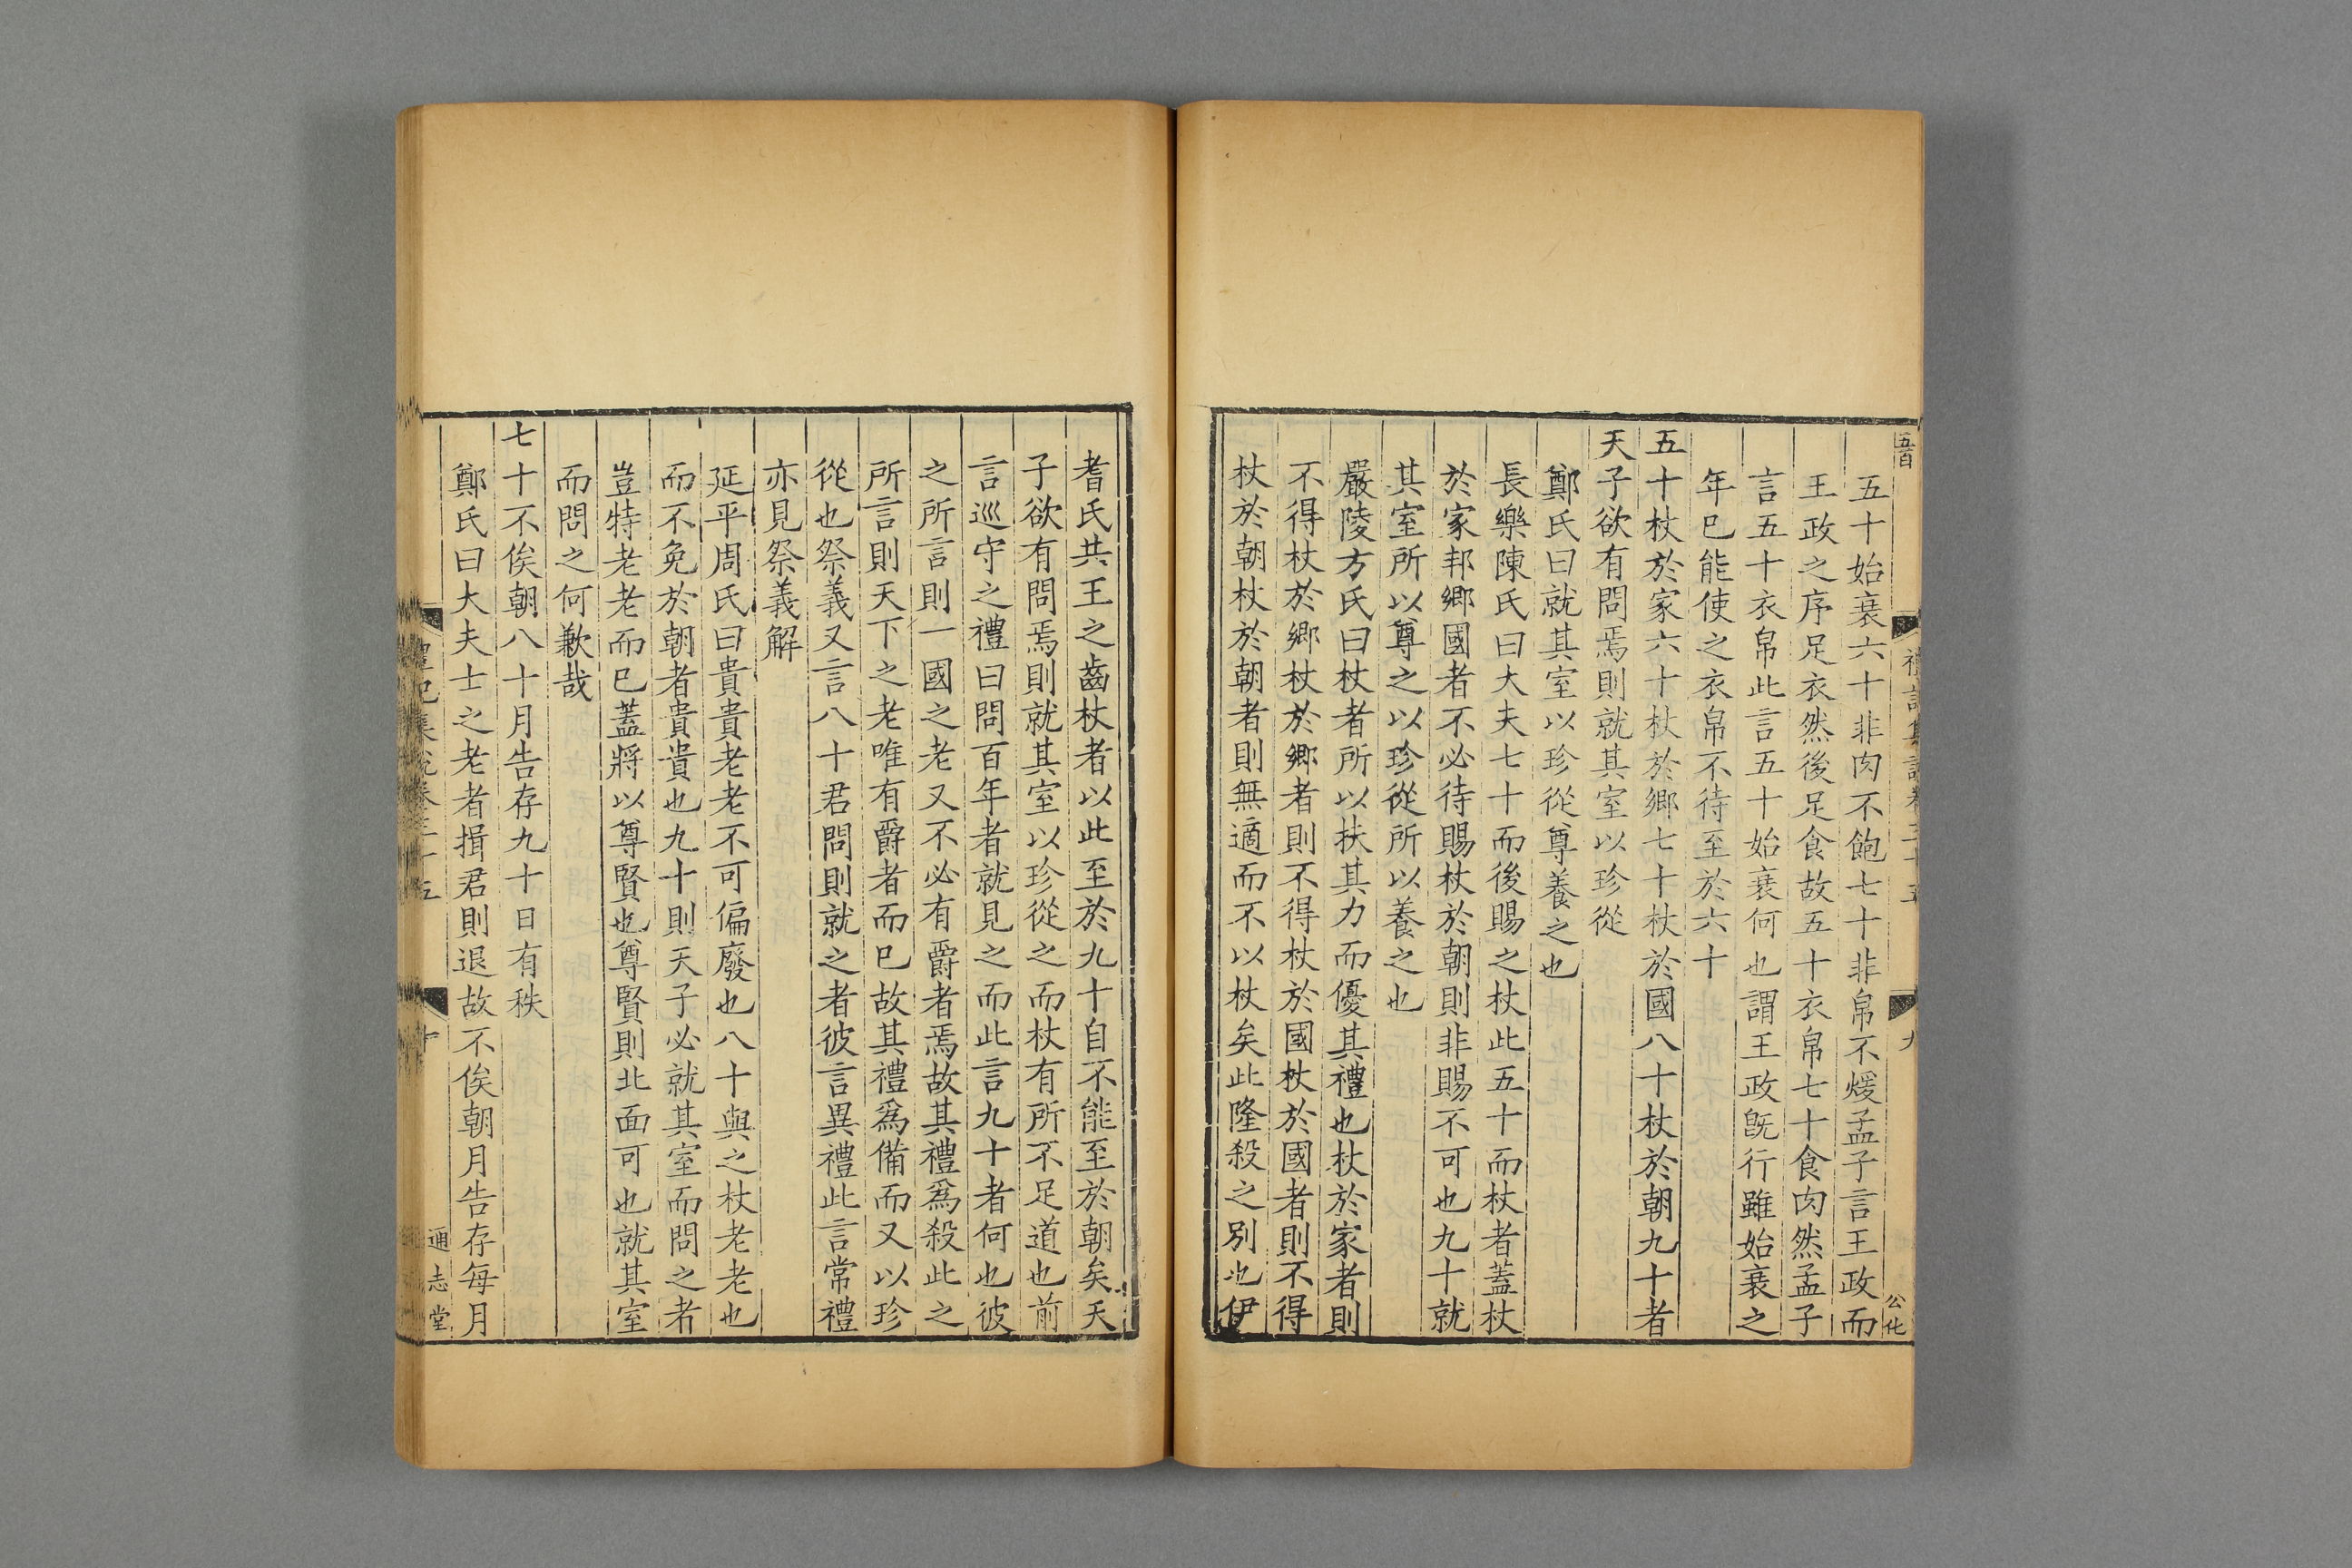 五百
禮記集說卷三十五
九
公化
五十始衰六十非肉不飽七十非帛不煖孟子言王政而
王政之序足衣然後足食故五十衣帛七十食肉然孟子
言五十衣帛此言五十始衰何也謂王政旣行雖始衰之
年已能使之衣帛不待至於六十
五十杖於家六十杖於鄉七十杖於國八十杖於朝九十者
天子欲有問焉則就其室以珍從
鄭氏曰就其室以珍從尊養之也
長樂陳氏曰大夫七十而後賜之杖此五十而杖者蓋杖
於家邦鄉國者不必待賜杖於朝則非賜不可也九十就
其室所以尊之以珍從所以養之也
嚴陵方氏曰杖者所以扶其力而優其禮也杖於家者則
不得杖於鄉杖於鄉者則不得杖於國杖於國者則不得
杖於朝杖於朝者則無適而不以杖矣此隆殺之別也伊
耆氏共王之齒杖者以此至於九十自不能至於朝矣天
子欲有問焉則就其室以珍從之而杖有所不足道也前
言巡守之禮曰問百年者就見之而此言九十者何也彼
之所言則一國之老又不必有爵者焉故其禮爲殺此之
所言則天下之老唯有爵者而已故其禮爲備而又以珍
從也祭義又言八十君問則就之者彼言異禮此言常禮
亦見祭義解
延平周氏曰貴貴老老不可偏廢也八十與之杖老老也
而不免於朝者貴貴也九十則天子必就其室而問之者
豈特老老而已蓋將以尊賢也尊賢則北面可也就其室
而問之何歉哉
七十不俟朝八十月告存九十日有秩
鄭氏曰大夫士之老者揖君則退故不俟朝月告存每月
禮記集說卷三十五
十
通志堂